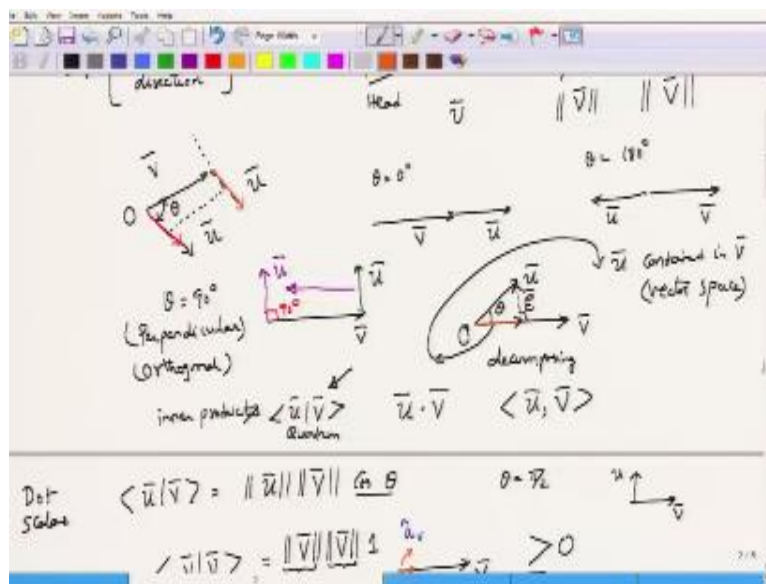 direction
Head V̄ ||V̄|| ||V̄||
V̄ ū
O θ
ū
θ = 0°
V̄ ū
θ = 180°
ū V̄
θ = 90°
(Perpendicular)
(orthogonal)
ū ū
90° V̄
ū
O θ V̄
decomposing
ū contained in V̄
(vector space)
inner products <ū|V̄> ū · V̄ <ū, V̄>
Quantum
Dot
Scalar
<ū|V̄> = ||ū|| ||V̄|| Cos θ
u
V̄
<V̄|V̄> = ||V̄|| ||V̄|| 1
V̄ >0